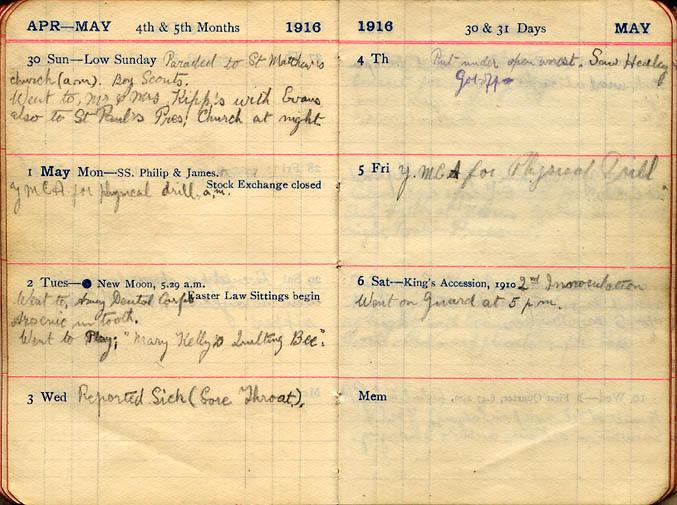 APR—MAY 4th & 5th Months 1916
30 Sun—Low Sunday Paraded to St Matthew's
church (a.m). Boy Scouts.
Went to, Mr & Mrs Kipp's with Evans
also to St Paul's Pres; Church at night
1 May Mon—SS. Philip & James.
Stock Exchange closed
Y M C A for physical drill, a,m.
2 Tues—● New Moon, 5.29 a.m.
Easter Law Sittings begin
Went to, Army Dental Corps
Arsenic in tooth.
Went to Play; "Mary Kelly's Quilting Bee".
3 Wed Reported Sick (Sore Throat).
1916 30 & 31 Days MAY
4 Th Put under open arrest. Saw Healey
Got off
5 Fri Y.M.C.A for Physical Drill
6 Sat—King's Accession, 1910 2nd Innoculation
Went on Guard at 5 p.m.
Mem